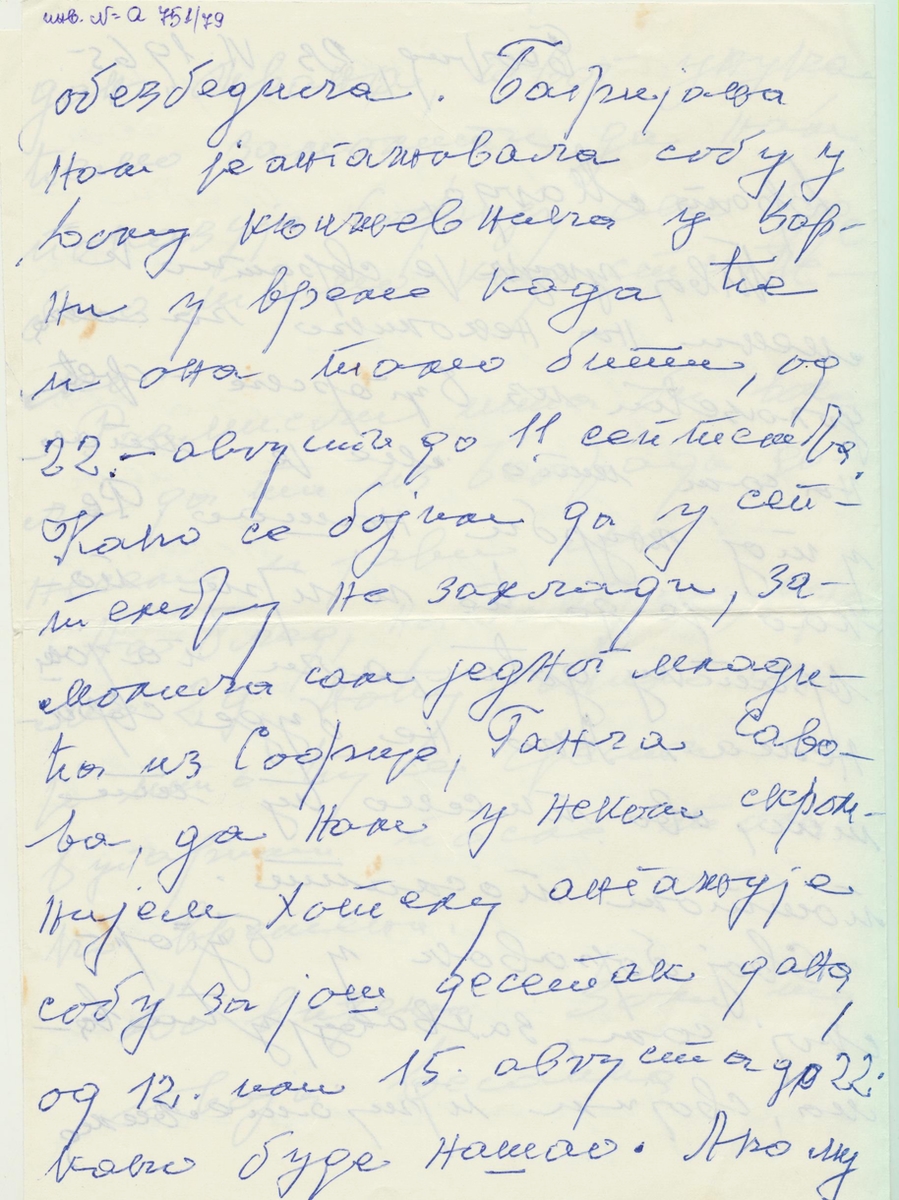 инв. № а 751/79
обезбедила. Багријана
нам је ангажовала собу у
Дому књижевника у Вар-
ни у време када ће
и она тамо бити, од
22. августа до 11 септембра.
Како се бојим да у сеп-
тембру не захлади, за-
молила сам једног млади-
ћа из Софије, Ганча Саво-
ва, да нам у неком скром-
нијем хотелу ангажује
собу за још десетак дана,
од 12. или 15. августа до 22.
како буде нашао. Ако му